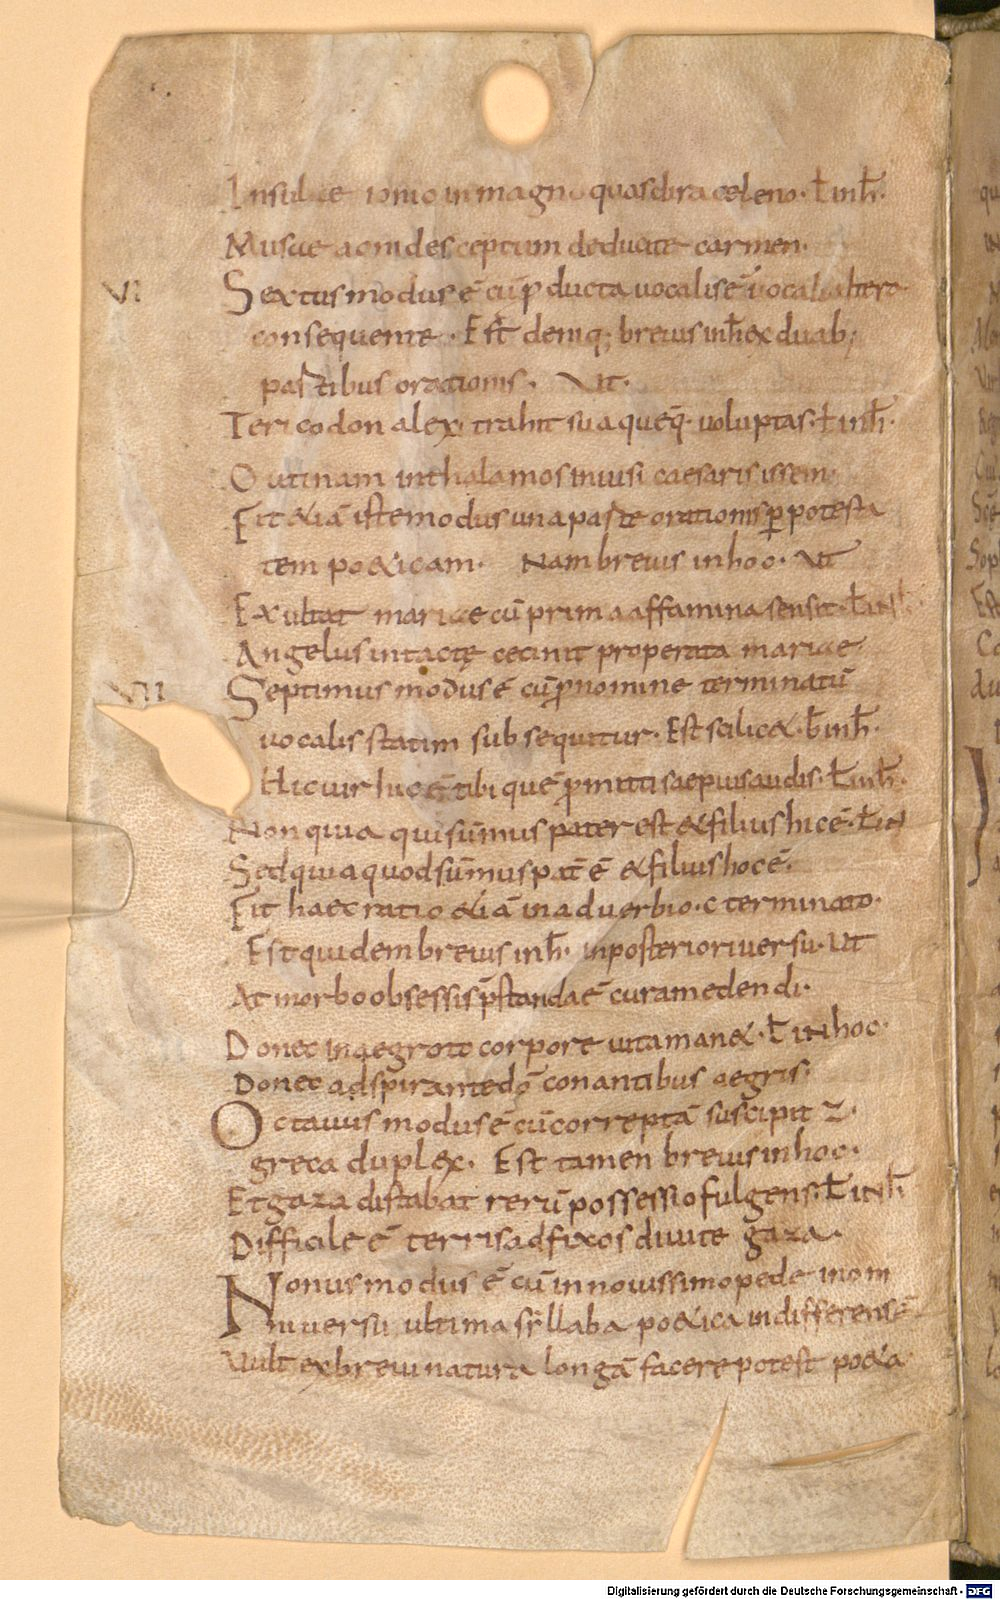 Insulae ionio in magno quas dira celeno· ł inh̄·
Musae aonides ceptum deducite carmen·
VI Sextus modus ē cū pducta uocalis ē uocali altera
consequente · Est deniq; breuis inh̄ ex duab;
partibus orationis· Ut·
Te ricodon alex, trahit sua quēq· uoluptas· ł inh̄·
O utinam in thalamos inuisi caesaris issem·
Fit &iā iste modus una parte orationis p potesta
tem po&icam· Nam breuis in hoc· Ut
Exultat mariae cū prima affamina sensit· ł inh̄
Angelus intactę cecinit properata mariae·
VII Septimus modus ē cū pnomine c terminatū
uocalis statim subsequitur· Est scilic& · b̄ inh̄·
Hic uir hic ē tibi quē pmitti saepius audis· ł inh̄·
Non quia qui sūmus pater est & filius hic ē· ł in
Sed quia quod sūmus pat̄ ē & filius hoc ē·
Fit haec ratio &iā in aduerbio · c terminato·
Est quidem breuis inh̄· in posteriori uersu· Ut
At morbo obsessis p̄standa ē cura medendi·
Donec in aegroto corpore uita man&· ł in hoc·
Donec adspirante dō conantibus aegris·
Octauus modus ē cū correptā suscipit z·
greca duplex· Est tamen breuis in hoc·
Et gaza distabat rerū possessio fulgens· ł inh̄
Difficile ē terris adfixos diuite gaza·
Nonus modus ē cū in nouissimo pede in om
ni uersu ultima syllaba po&ica indifferens ē
Uult ex breui natura longā facere potest po&a·
Digitalisierung gefördert durch die Deutsche Forschungsgemeinschaft · DFG